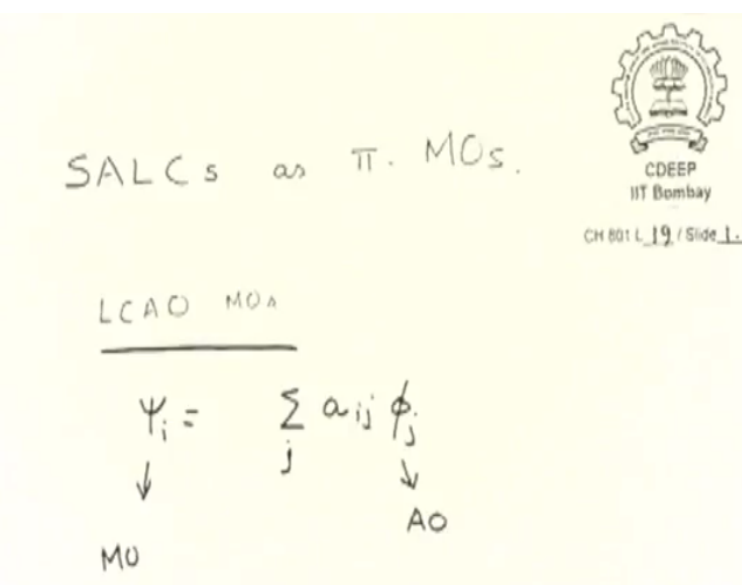 SALCs as π. MOs.
CDEEP
IIT Bombay
CH 801 L 19 / Slide 1.
LCAO MOs
Ψi = Σj aij ϕj
↓ ↓
MO AO